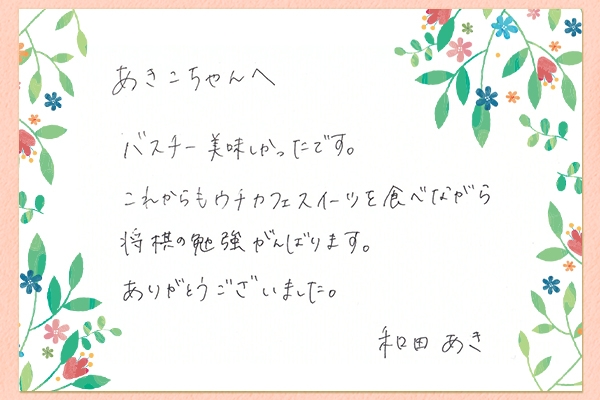 あきこちゃんへ
バスチー美味しかったです。
これからもウチカフェスイーツを食べながら
将棋の勉強がんばります。
ありがとうございました。
和田あき